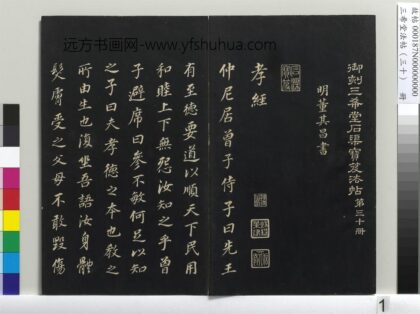 远方书画网-www.yfshuhua.com
故帖 000187N000000000
三希堂法帖(三十) 冊
御刻三希堂石渠寶笈法帖 第三十冊
明董其昌書
孝經
仲尼居曾子侍子曰先王
有至德要道以順天下民用
和睦上下無怨汝知之乎曾
子避席曰參不敏何足以知
之子曰夫孝德之本也教之
所由生也復坐吾語汝身體
髮膚受之父母不敢毀傷
1